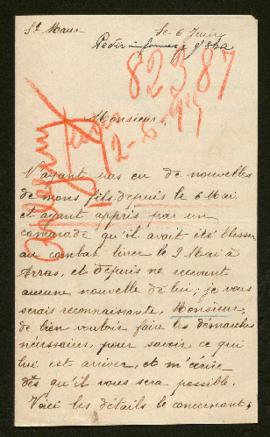 St Maur le 6 Juin
Pedir informes
82387
Monsieur
N'ayant pas eu de nouvelles
de mons fils depuis le 6 Mai
et ayant appris par un
camarade qu'il avait été blesser
au combat livrer le 9 Mai à
Arras, et depuis ne recevent
aucune nouvelle de lui; je vous
serais reconnaissante, Monsieur,
de bien vouloir faire les démarches
nécéssaires, pour savoir ce qui
lui est arriver, et m'écrire
dès qu'il vous sera possible.
Voici les détails le concernant,